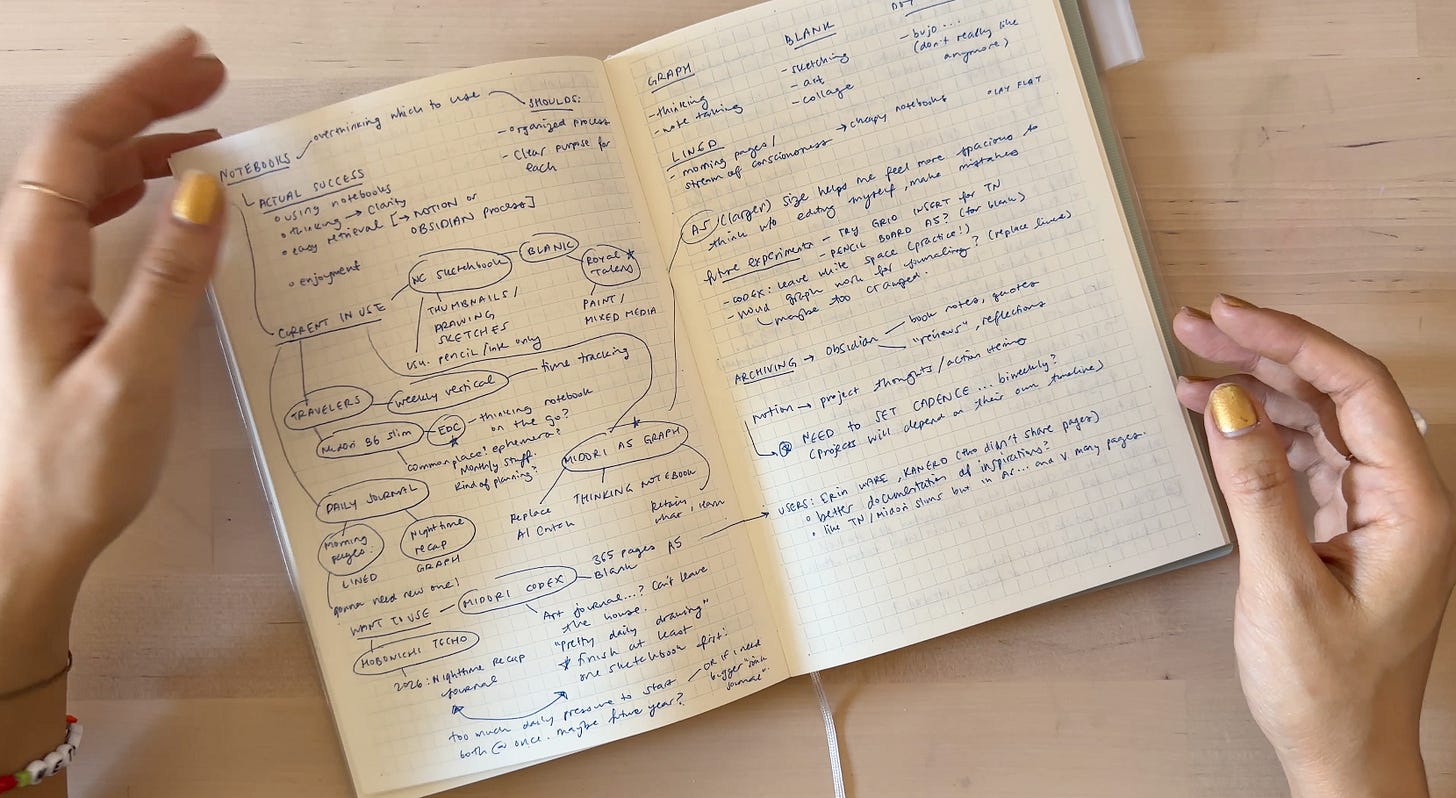 NOTEBOOKS
overthinking which to use
SHOULDS:
- organized process
- clear purpose for
each
ACTUAL SUCCESS
• using notebooks
• thinking → clarity
• easy retrieval [→ NOTION or
OBSIDIAN process]
• enjoyment
CURRENT IN USE
NC Sketchbook
BLANK
Royal
Talens
THUMBNAILS /
DRAWING
SKETCHES
usu. pencil/ink only
PAINT /
MIXED MEDIA
TRAVELERS
weekly vertical
time tracking
Midori B6 slim
EDC
- thinking notebook
on the go?
commonplace? ephemera?
Monthly stuff.
Kind of planning?
MIDORI A5 GRAPH
THINKING NOTEBOOK
Replace
AI crutch
Retain
what I learn
DAILY JOURNAL
Morning
Pages:
Nighttime
recap
LINED
GRAPH
gonna need new one!
WANT TO USE
MIDORI CODEX
365 pages A5
Blank
Art journal...? Can't leave
the house.
"pretty daily drawing"
finish at least
one sketchbook first!
HOBONICHI TECHO
2026: Nighttime recap
journal
too much daily pressure to start
both @ once. maybe future year?
- OR if I need
bigger
journal"
GRAPH
- thinking
- note taking
BLANK
- sketching
- art
- collage
- bujo...
(don't really like
anymore)
LINED
- morning pages/
stream of consciousness → cheapy notebooks
• LAY FLAT
A5 (larger) size helps me feel more spacious to
think w/o editing myself, make mistakes
future experiments - TRY GRID INSERT for TN
- PENCIL BOARD A5? (for blank)
- CODEX: leave white space (practice!)
- would graph work for journaling? (replace lined)
maybe too cramped.
ARCHIVING → Obsidian
book notes, quotes
"reviews", reflections
notion → project thoughts/action items
NEED TO SET CADENCE ... biweekly?
(projects will depend on their own timeline)
USERS: Erin WARE, KANERO (tho didn't share pages)
• better documentation of inspirations?
• like TN/Midori slims but in A5... and v many pages.